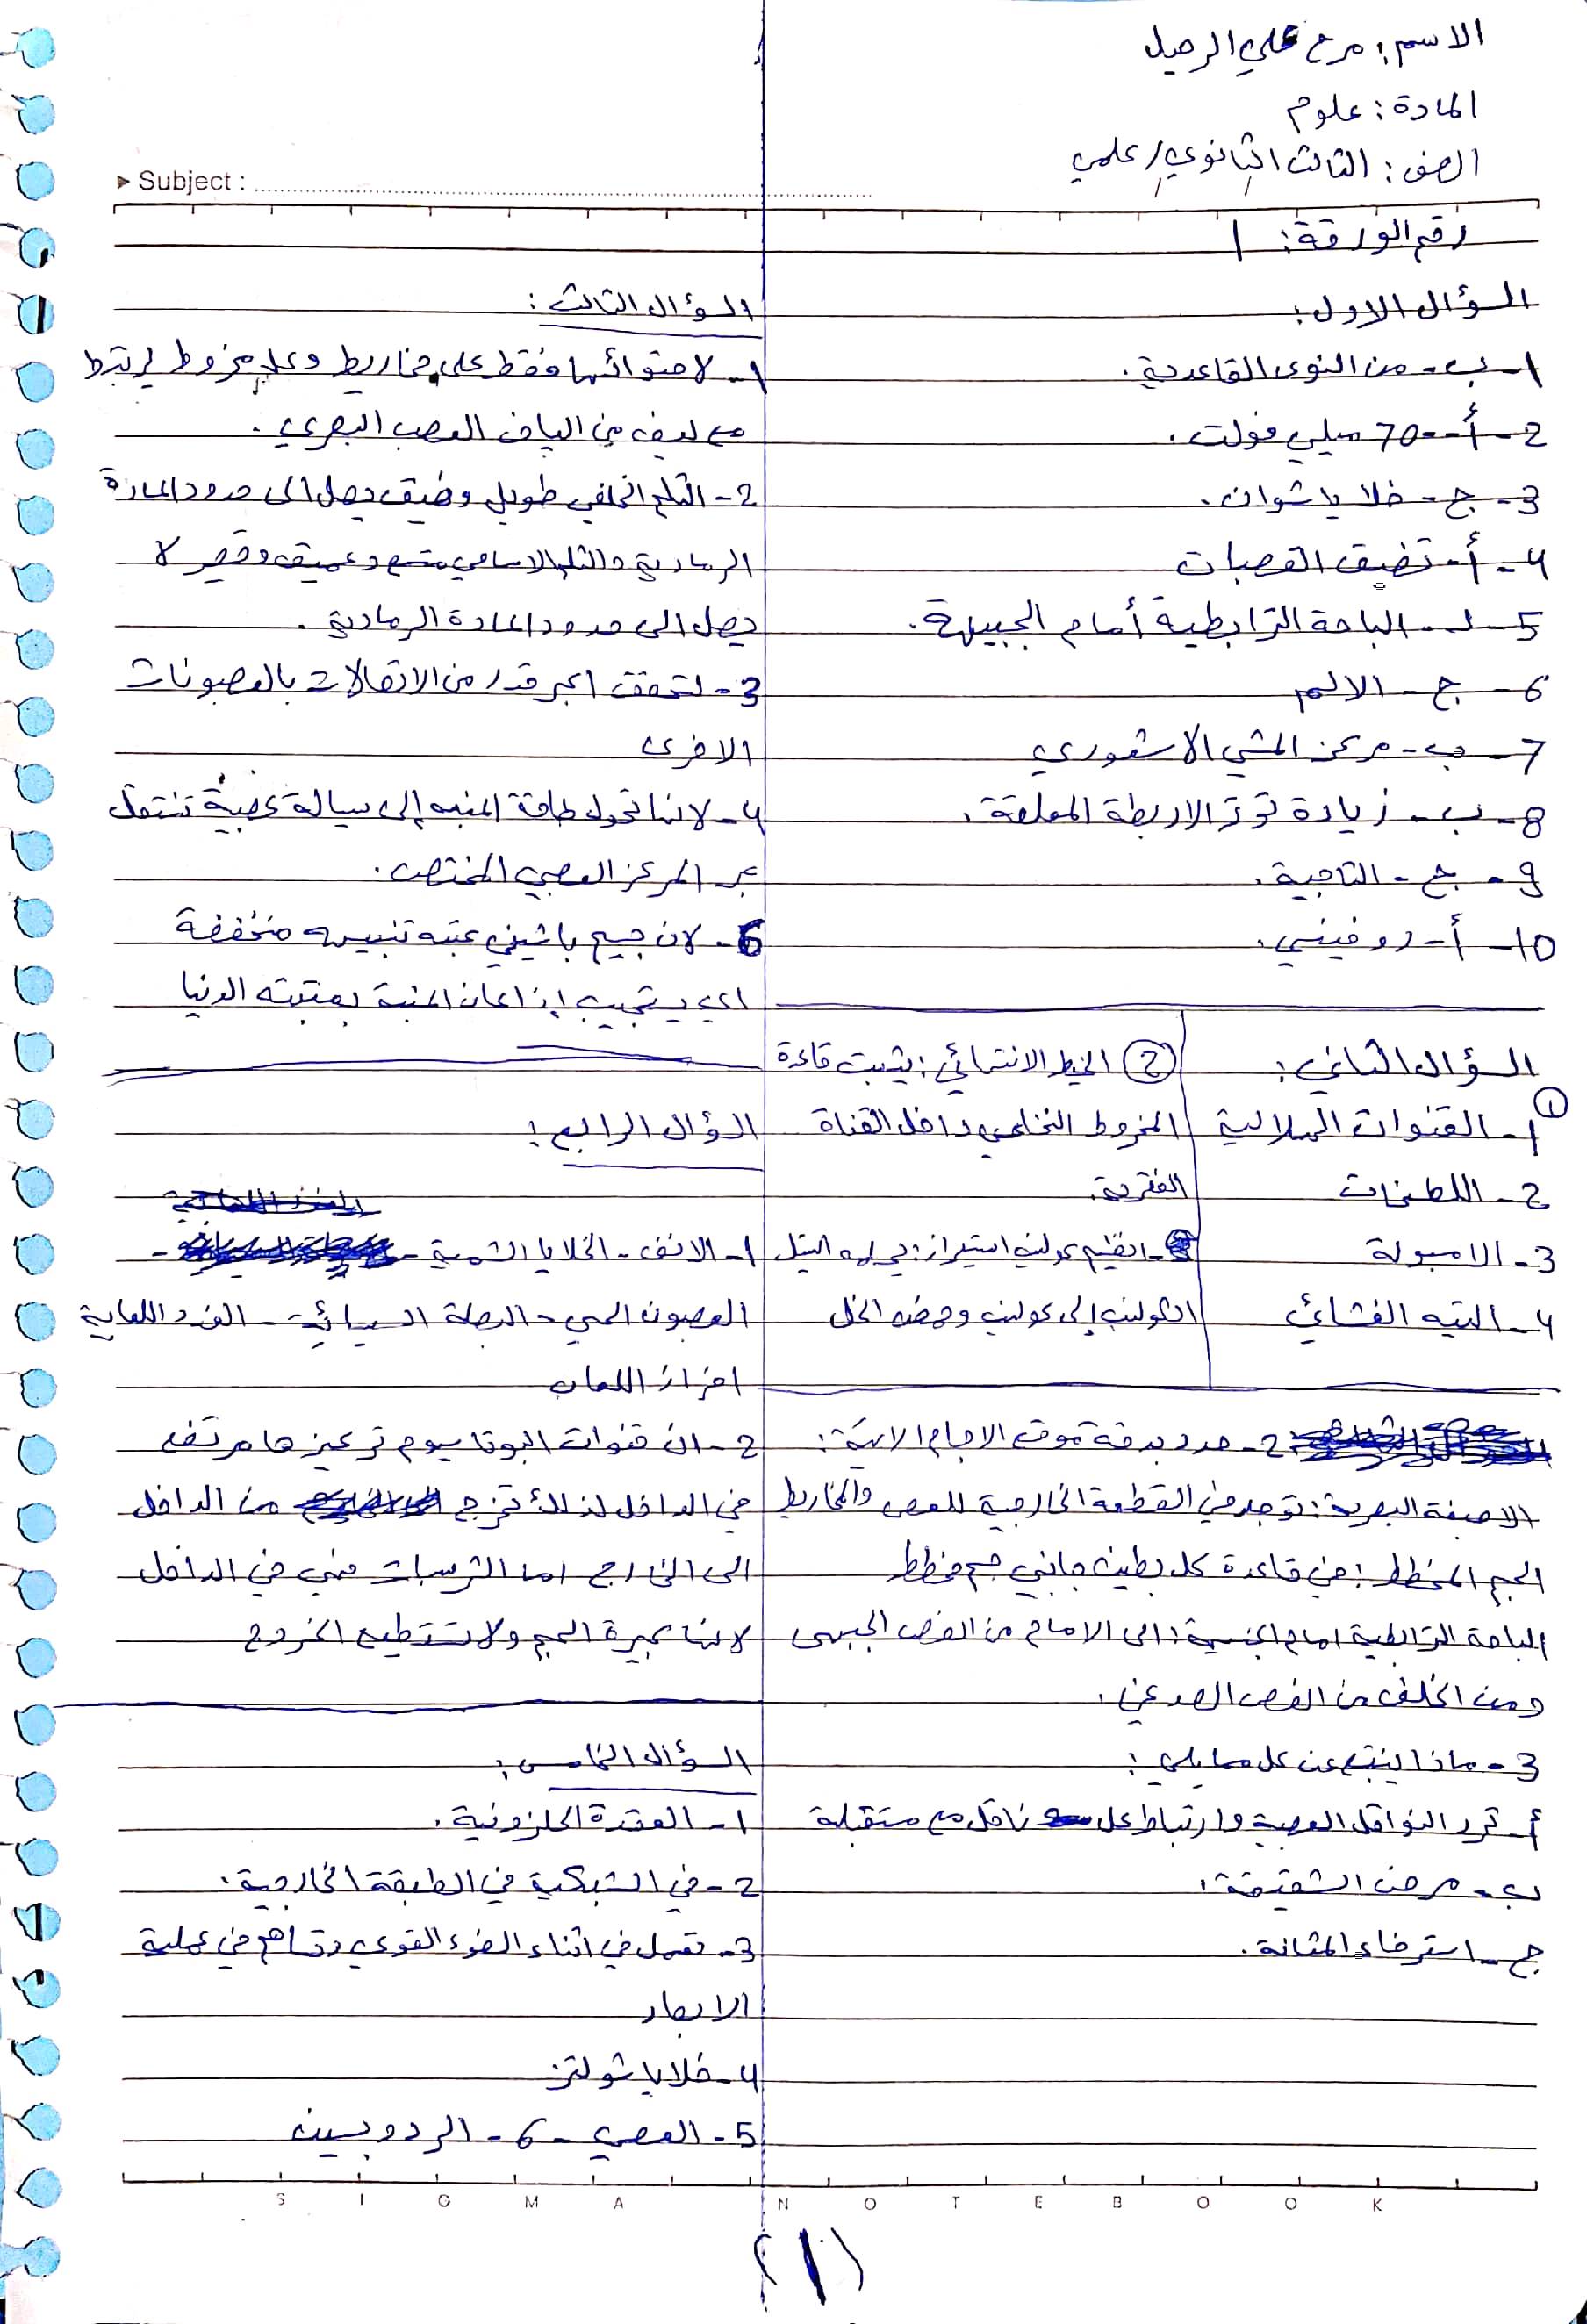 الاسم: مرح علي الرحيل
المادة: علوم
الصف: الثالث الثانوي/علمي
Subject :
رقم الورقة: 1
السؤال الاول:
1- ب- من النوى القاعدية.
2- أ- -70 ميلي فولت.
3- ج- خلايا شوان.
4- أ- تضيق القصبات
5- د- الباحة الترابطية أمام الجبيهة.
6- ج- الالم
7- ب- مركز المشي الاشعوري
8- ب- زيادة توتر الاربطة المعلقة.
9- ج- التاجية.
10- أ- روفيني.
السؤال الثاني:
①
1- القنوات الهلالية
2- اللطخات
3- الامبولة
4- التيه الغشائي
② الخيط الانتهائي: يثبت قاعدة
المخروط النخاعي داخل القناة
الفقرية.
- انظيم كولين استيراز: يحلمه استيل
الكولين إلى كولين وحمض الخل
2- حدد بدقة موقع الاجسام الاتية:
الاصبغة البصرية: توجد في القطعة الخارجية للعصي والمخاريط
الجسم المخطط: في قاعدة كل بطين جانبي جسم مخطط
الباحة الترابطية امام الجبهية: الى الامام من الفص الجبهي
ومن الخلف من الفص الصدغي.
3- ماذا ينتج عن كل مما يلي:
أ- تحرر النواقل العصبية وارتباط كل ناقل مع مستقبلة
ب- مرض الشقيقة.
ج- استرخاء المثانة.
السؤال الثالث:
1- لاحتوائها فقط على مخاريط وكل مخروط يرتبط
مع ليف من الياف العصب البصري.
2- الثلم الخلفي طويل وضيق يصل الى حدود المادة
الرمادية والثلم الامامي متسع وعميق وقصير لا
يصل الى حدود المادة الرمادية.
3- لتحقق اكبر قدر من الاتصالات بالعصبونات
الاخرى
4- لانها تحول طاقة المنبه إلى سيالة عصبية تنتقل
عبر المركز العصبي المختص.
6- لان جسيم باشيني عتبة تنبيهه منخفضة
اي يستجيب إذا كان المنبة بعتبته الدنيا
السؤال الرابع:
1- الانف - الخلايا الشمية -
العصبون الحسي - البصلة السيسائية - الغدد اللعابية
افراز اللعاب
2- ان قنوات البوتاسيوم تركيزها مرتفع
في الداخل لذلك تخرج من الداخل
الى الخارج اما الشرسبات فهي في الداخل
لانها كبيرة الحجم ولا تستطيع الخروج
السؤال الخامس:
1- العقدة الحلزونية.
2- في الشبكية في الطبقة الخارجية.
3- تعمل في اثناء الضوء القوي وتساهم في عملية
الابصار
4- خلايا شولتز
5- العصي - 6- الرودوبسين
SIGMA NOTEBOOK
(1)